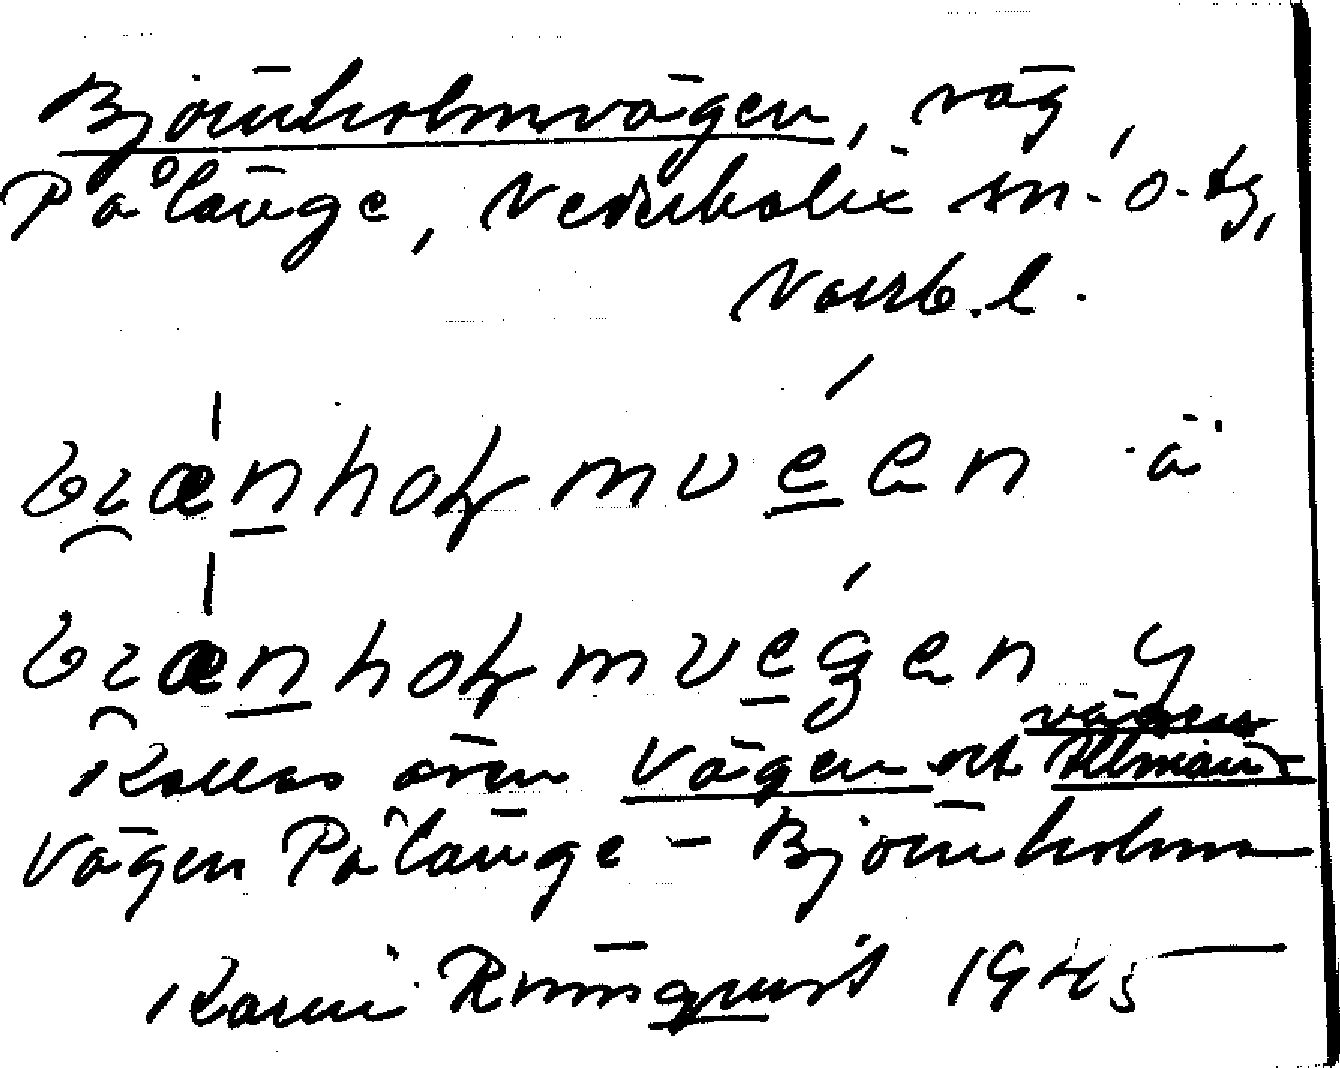 Björnholmvägen, väg,
Pålänge, Nederkalix sn. o. tg,
Norrb. l.
biænholmveen ä
bi̯ænholmvegen y
Kallas även Vägen och vägen
Vägen Pålänge – Björnholmen
Karin Rönnquist 1945